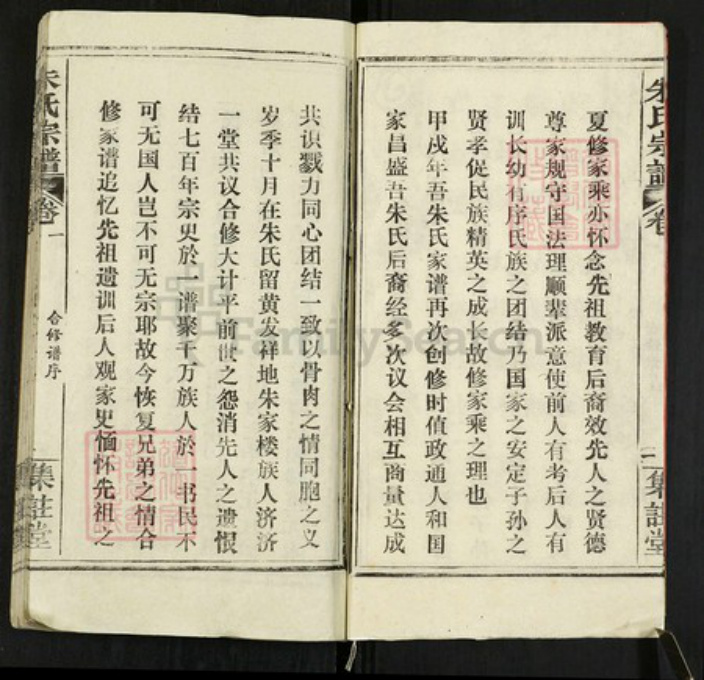 朱氏宗譜
卷
一
集註堂
夏修家乘亦怀念先祖教育后裔效先人之贤德
尊家规守国法理顺辈派意使前人有考后人有
训长幼有序氏族之团结乃国家之安定子孙之
贤孝促民族精英之成长故修家乘之理也
甲戌年吾朱氏家谱再次创修时值政通人和国
家昌盛吾朱氏后裔经多次议会相互商量达成
共识戮力同心团结一致以骨肉之情同胞之义
岁季十月在朱氏留黄发祥地朱家楼族人济济
一堂共议合修大计平前世之怨消先人之遗恨
结七百年宗史於一谱聚千万族人於一书民不
可无国人岂不可无宗耶故今恢复兄弟之情合
修家谱追忆先祖遗训后人观家史缅怀先祖之
朱氏宗譜
卷一
合修谱序
集註堂
FamilySearch